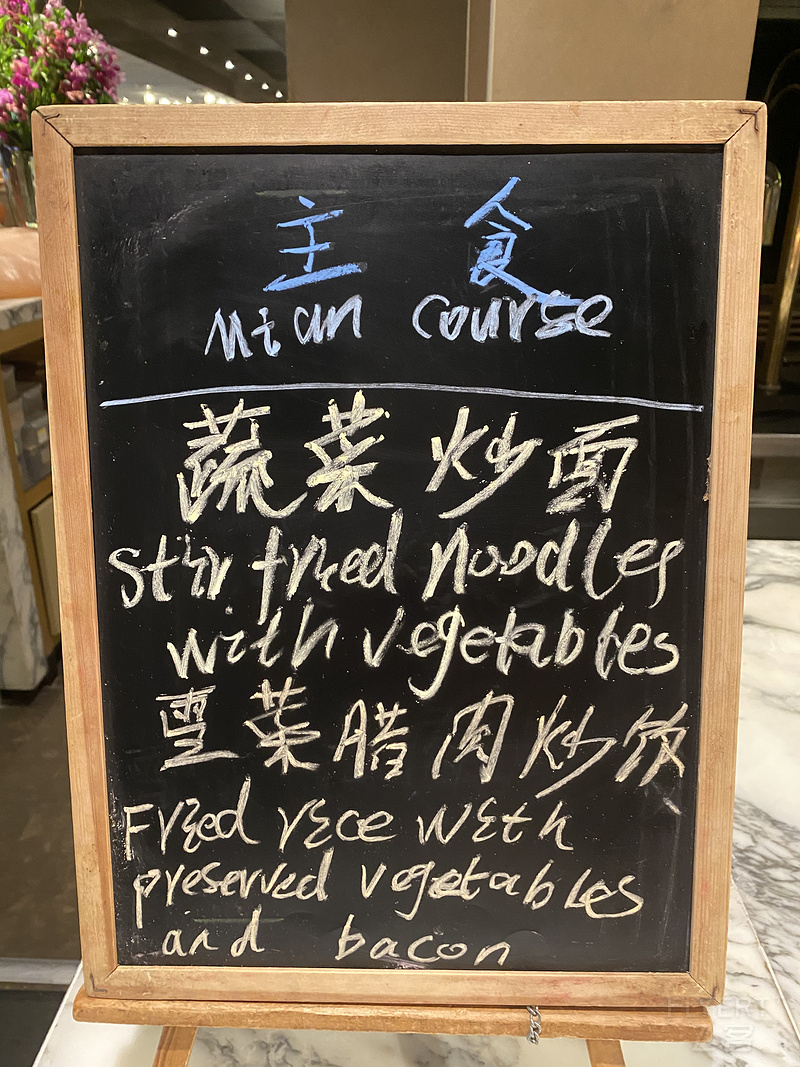 主 食
Mian course
蔬菜炒面
Stir fried noodles
with vegetables
雪菜腊肉炒饭
Fried rice with
preserved vegetables
and bacon